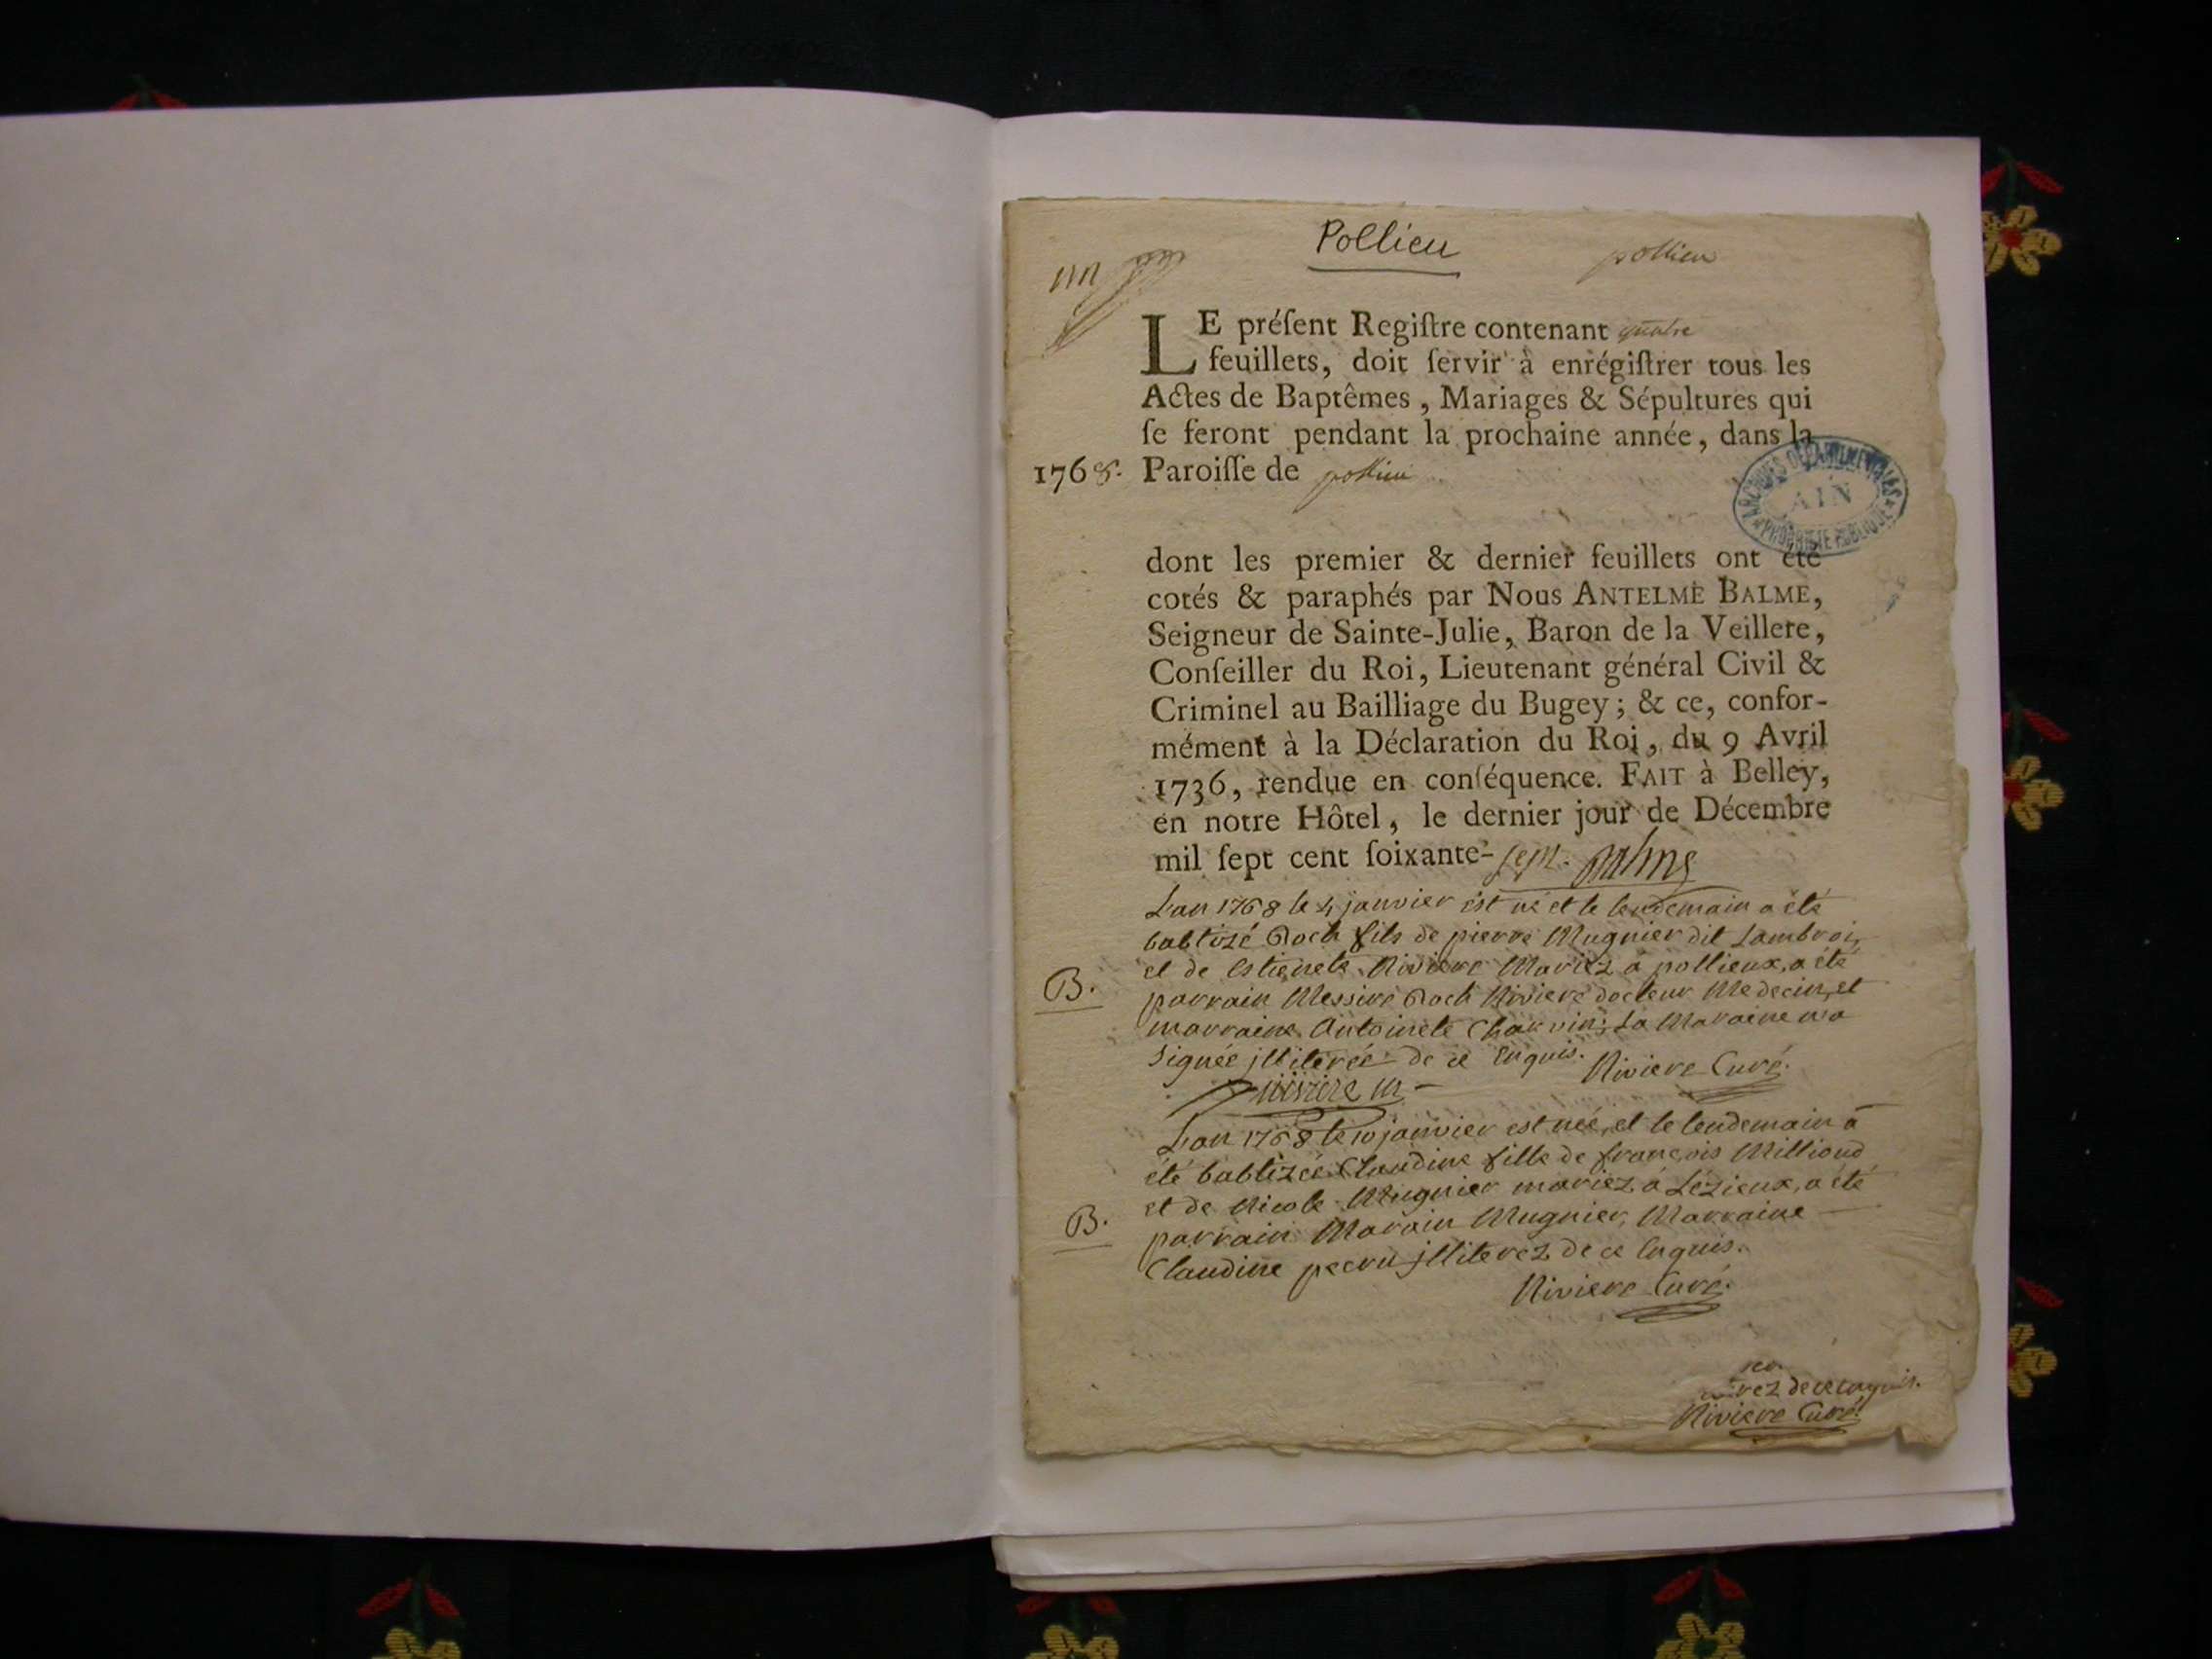 Pollieu
pollieu
un
LE préſent Regiſtre contenant quatre
feuillets, doit ſervir à enrégiſtrer tous les
Actes de Baptêmes, Mariages & Sépultures qui
ſe feront pendant la prochaine année, dans la
1768. Paroiſſe de pollieu
ARCHIVES DÉPARTEMENTALES
AIN
PROPRIÉTÉ PUBLIQUE
dont les premier & dernier feuillets ont été
cotés & paraphés par Nous ANTELME BALME,
Seigneur de Sainte-Julie, Baron de la Veillere,
Conſeiller du Roi, Lieutenant général Civil &
Criminel au Bailliage du Bugey; & ce, confor-
mément à la Déclaration du Roi, du 9 Avril
1736, rendue en conſéquence. FAIT à Belley,
en notre Hôtel, le dernier jour de Décembre
mil ſept cent ſoixante-sept. Balme
L'an 1768 le 4 janvier est né et le lendemain a été
babtizé Roch fils de pierre Mugnier dit Lambroi,
et de Estienete Riviere Mariez à pollieux, a été
B. parrain Messire Roch Riviere docteur Medecin, et
marraine Antoinete Charvin; La Maraine n'a
signée jlliterée de ce Enquis. Riviere Curé.
Riviere m
L'an 1768 le 10 janvier est née, et le lendemain à
été babtizée Claudine fille de françois Milliand
et de Nicole Mugnier mariez à Lézieux, a été
B. parrain Marain Mugnier, Marraine
Claudine pecru jlliterez de ce Enquis.
Riviere Curé.
rez de ce enquis.
Riviere Curé.